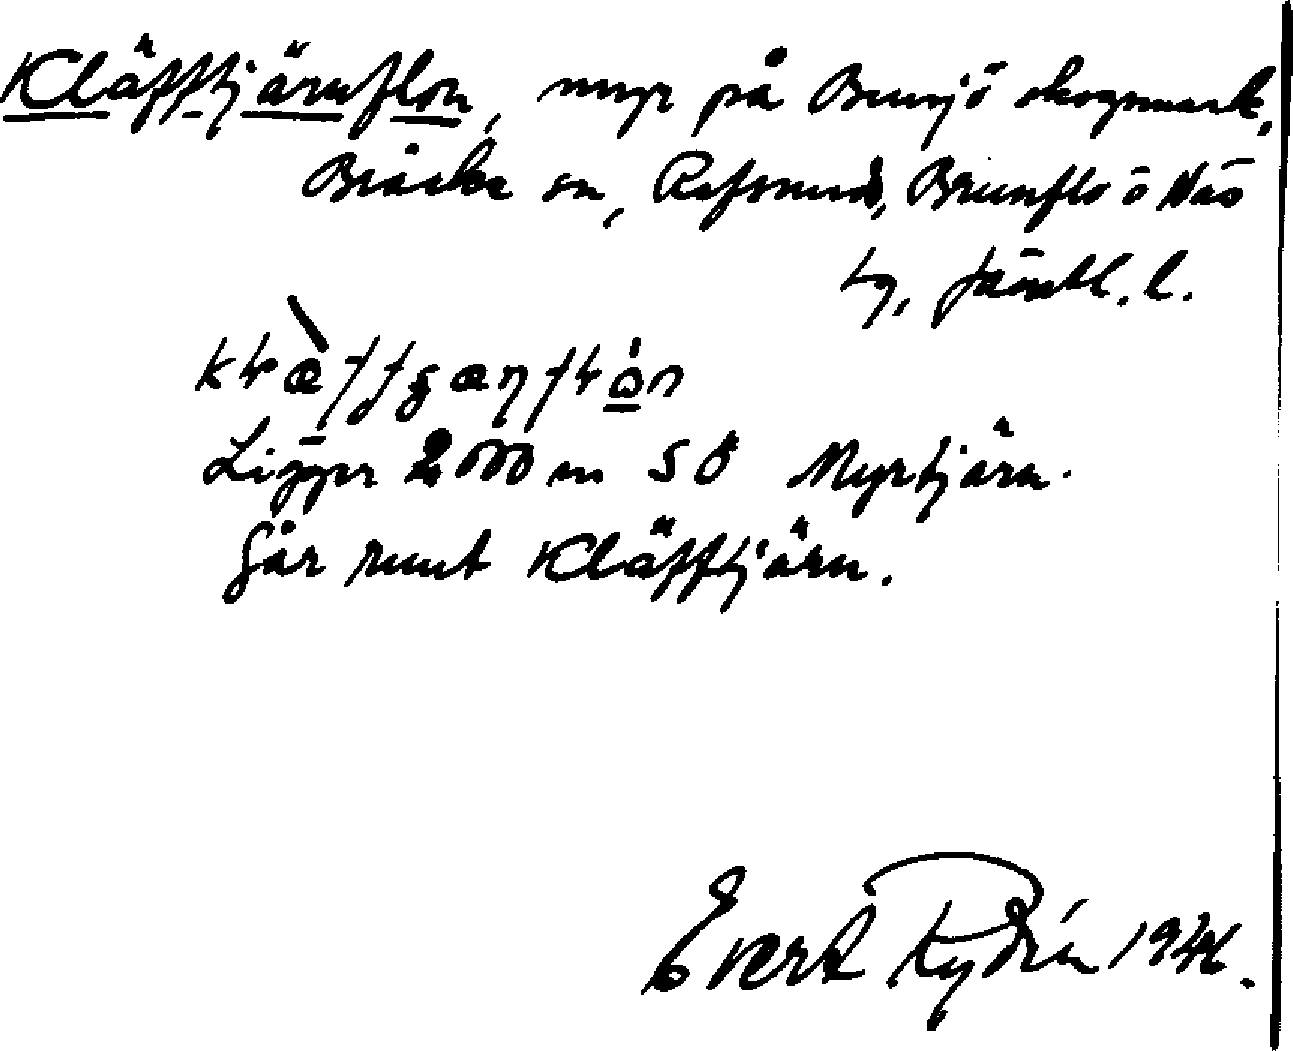 Kläfftjärnflon, myr på Bensjö skogsmark,
Bräcke sn, Refsunds, Brunflo o Näs
tg, Jämtl. l.
Ligger 2000 m SÖ Myrtjärn.
Går runt Kläfftjärn.
Evert Rydén 1946.